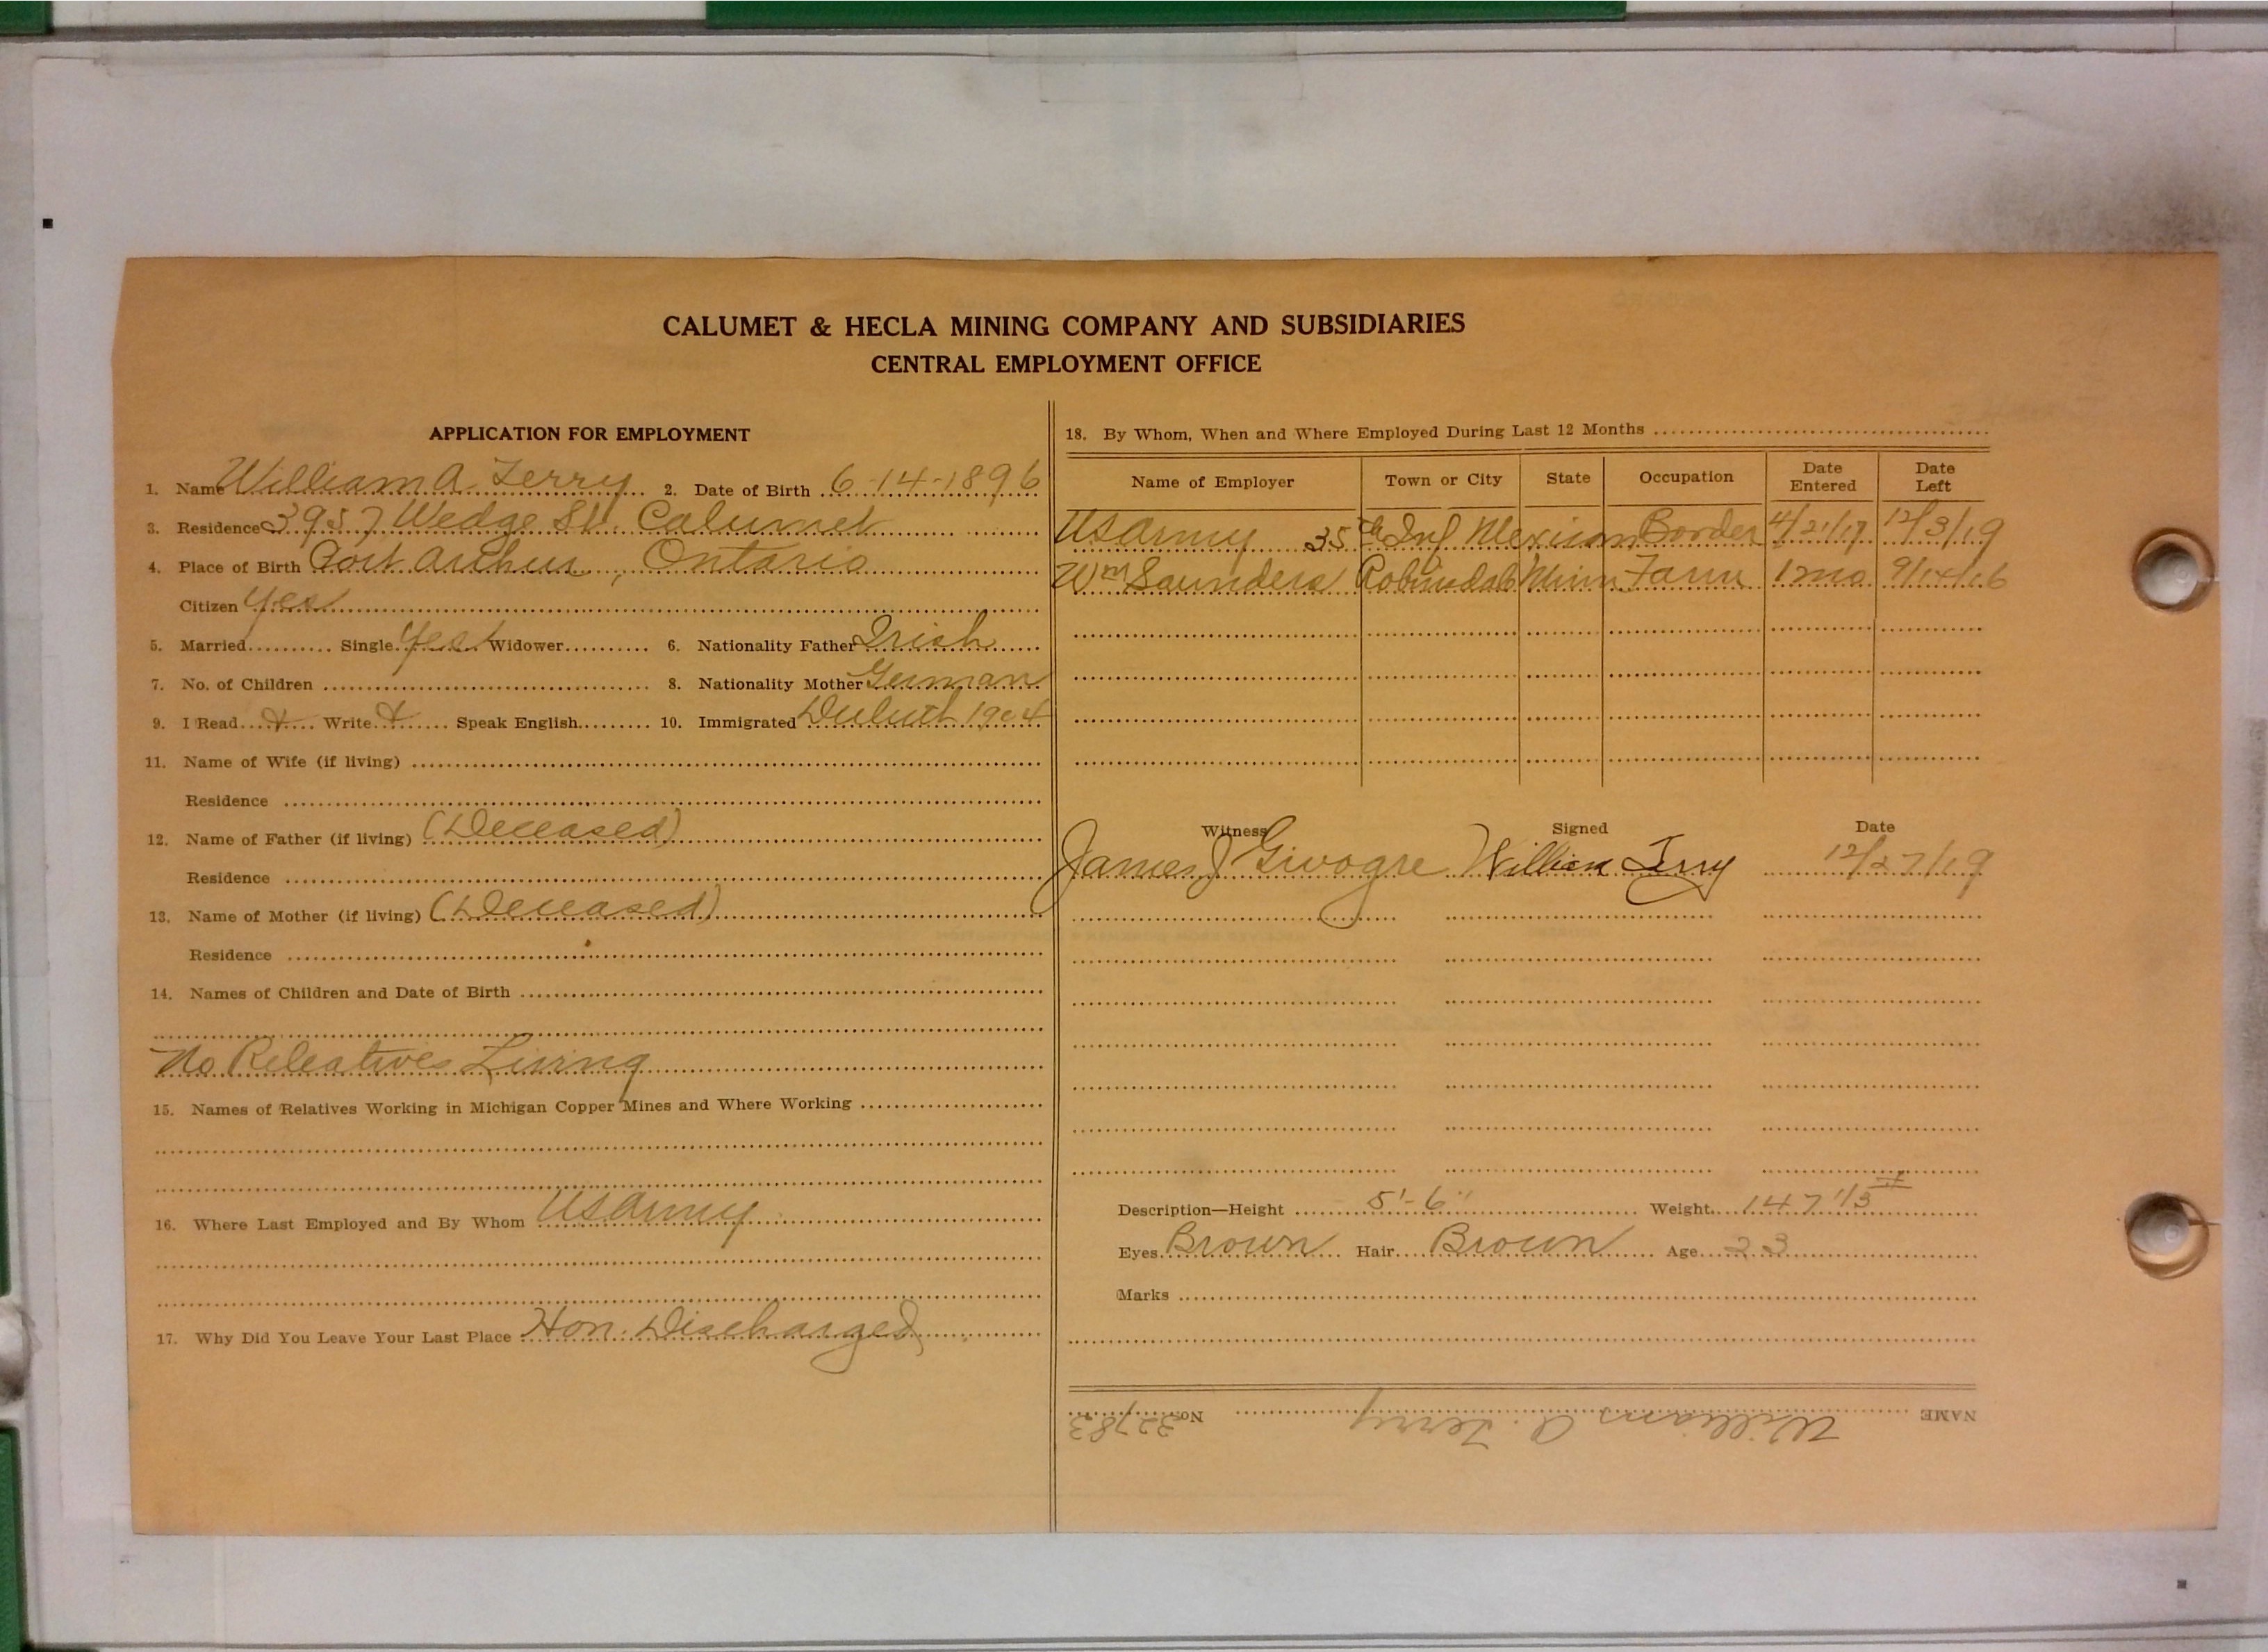 CALUMET & HECLA MINING COMPANY AND SUBSIDIARIES
CENTRAL EMPLOYMENT OFFICE
APPLICATION FOR EMPLOYMENT
1. Name William A. Terry 2. Date of Birth 6-14-1896
3. Residence 3957 Wedge St. Calumet
4. Place of Birth Port Arthur, Ontario
Citizen Yes
5. Married Single Yes Widower 6. Nationality Father Irish
7. No. of Children 8. Nationality Mother German
9. I Read Write Speak English 10. Immigrated Duluth 1904
11. Name of Wife (if living)
Residence
12. Name of Father (if living) (Deceased)
Residence
13. Name of Mother (if living) (Deceased)
Residence
14. Names of Children and Date of Birth
No Releatives Living
15. Names of Relatives Working in Michigan Copper Mines and Where Working
16. Where Last Employed and By Whom US Army
17. Why Did You Leave Your Last Place Hon. Discharged
18. By Whom, When and Where Employed During Last 12 Months
Name of Employer Town or City State Occupation Date Entered Date Left
US Army 35th Inf Mexican Border 4/21/17 12/3/19
Wm Saunders Robinsdale Minn Farm 12 mo 9/14/16
Witness Signed Date
James J Givogre William Terry 12/27/19
Description—Height 5'-6" Weight 147 1/3 #
Eyes Brown Hair Brown Age 23
Marks
NAME William A. Terry No. 32783